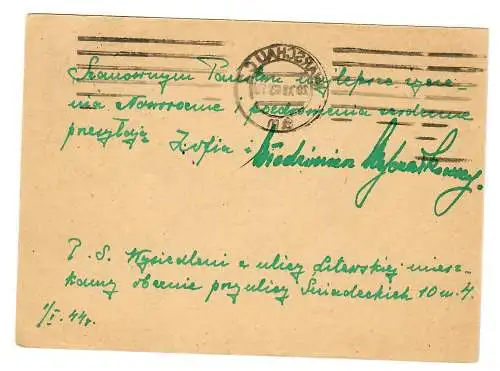 Szanownym Państwu najlepsze życze-
nia Noworoczne pozdrowienia serdeczne
przesyłają Zofia i Włodzimierz
P. S. Wysiedleni z ulicy Litewskiej miesz-
kamy obecnie przy ulicy Śniadeckich 10 m. 4.
1/I. 44r.